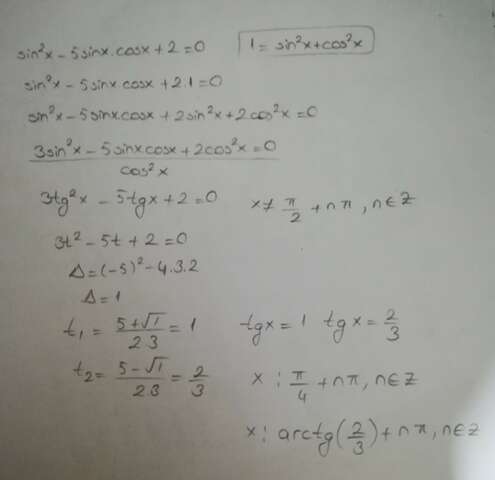 sin²x - 5sinx.cosx + 2 = 0   1 = sin²x + cos²x
sin²x - 5sinx cosx + 2.1 = 0
sin²x - 5sinx.cosx + 2sin²x + 2cos²x = 0
3sin²x - 5sinxcosx + 2cos²x = 0
cos²x
3tg²x - 5tgx + 2 = 0   x ≠ π/2 + nπ, n∈Z
3t² - 5t + 2 = 0
Δ = (-5)² - 4.3.2
Δ = 1
t₁ = (5+√1)/(2.3) = 1   tgx = 1   tgx = 2/3
t₂ = (5-√1)/(2.3) = 2/3   x : π/4 + nπ, n∈Z
x : arctg(2/3) + nπ, n∈Z